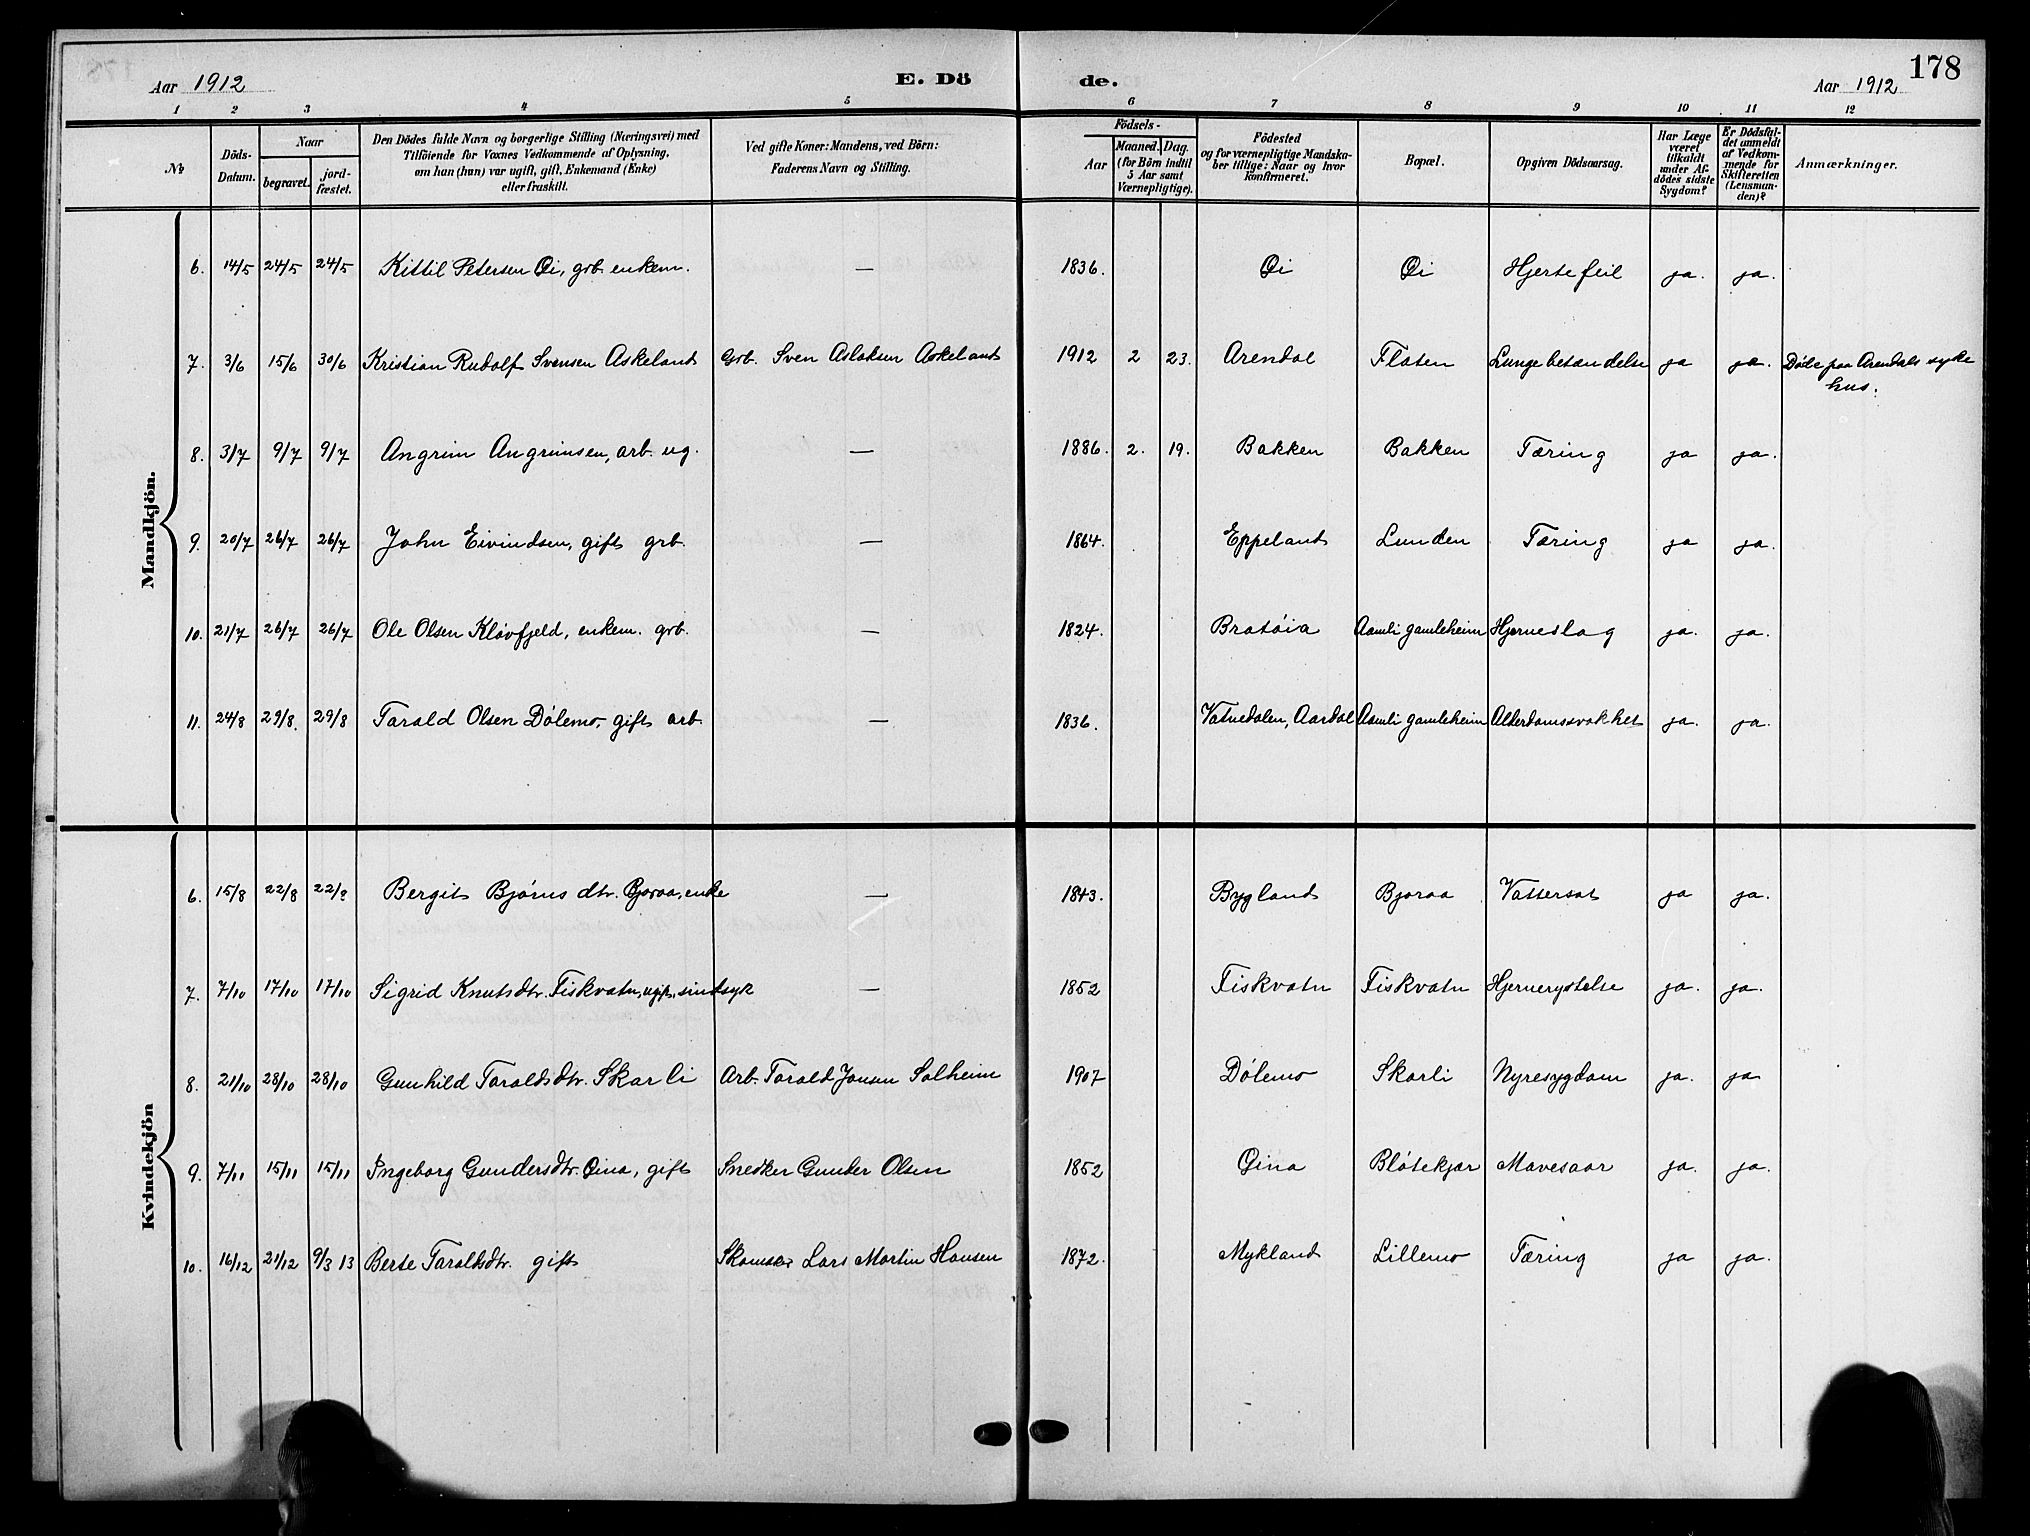 Aar 1912
E. Dö
de.
Aar 1912
178
1 2 3 4 5 6 7 8 9 10 11 12
№
Döds-
Datum.
Naar
begravet.
jord-
fæstet.
Den Dödes fulde Navn og borgerlige Stilling (Næringsvei) med
Tilföiende for Voxnes Vedkommende af Oplysning,
om han (hun) var ugift, gift, Enkemand (Enke)
eller fraskilt.
Ved gifte Koner: Mandens, ved Börn:
Faderens Navn og Stilling.
Födsels-
Aar
Maaned. Dag.
(for Börn indtil
5 Aar samt
Værnepligtige).
Födested
og for værnepligtige Mandska-
ber tillige: Naar og hvor
konfirmeret.
Bopæl.
Opgiven Dödsaarsag.
Har Læge
været
tilkaldt
under Af-
dödes sidste
Sygdom?
Er Dödsfal-
det anmeldt
af Vedkom-
mende for
Skifteretten
(Lensman-
den)?
Anmærkninger.
Mandkjön.
6. 14/5 24/5 24/5 Kittil Petersen Øi, grb. enkem. — 1836. Øi Øi Hjertefeil ja. ja.
7. 3/6 15/6 30/6 Kristian Rudolf Svensen Askeland Grb. Sven Aslaksen Askeland 1912 2 23. Arendal Flaten Lungebetændelse ja ja. Døde paa Arendals syke
hus.
8. 3/7 9/7 9/7 Angrim Angrimsen, arb. ug. — 1886. 2. 19. Bakken Bakken Tæring ja ja.
9. 20/7 26/7 26/7 John Eivindsen, gift grb. — 1864. Eppeland Lunden Tæring ja ja.
10. 21/7 26/7 26/7 Ole Olsen Kløvfjeld, enkem. grb. — 1824. Bratøia Aamli gamleheim Hjerneslag ja. ja.
11. 24/8 29/8. 29/8 Tarald Olsen Dølemo, gift arb. — 1836. Vatnedalen, Aardal Aamli gamleheim Alderdomssvakhet ja. ja.
Kvindekjön
6. 15/8 22/8 22/8 Bergit Bjørnsdtr. Bjoraa, enke — 1843. Bygland Bjoraa Vattersot ja ja.
7. 7/10 17/10 17/10 Sigrid Knutsdtr. Fiskvatn, ugift, sindsyk — 1852 Fiskvatn Fiskvatn Hjernerystelse ja. ja.
8. 21/10 28/10 28/10 Gunhild Taraldsdtr. Skarli Arb. Tarald Jonsen Solheim 1907 Dølemo Skarli Nyresygdom ja. ja
9. 7/11 15/11 15/11 Ingeborg Gundersdtr. Øina, gift Snedker Gunder Olsen 1852 Øina Bløtekjær Mavesaar ja. ja.
10. 16/12 21/12 9/3 13 Berte Taraldsdtr. gift Lars Martin Hansen 1872. Mykland Lillemo Tæring ja ja.